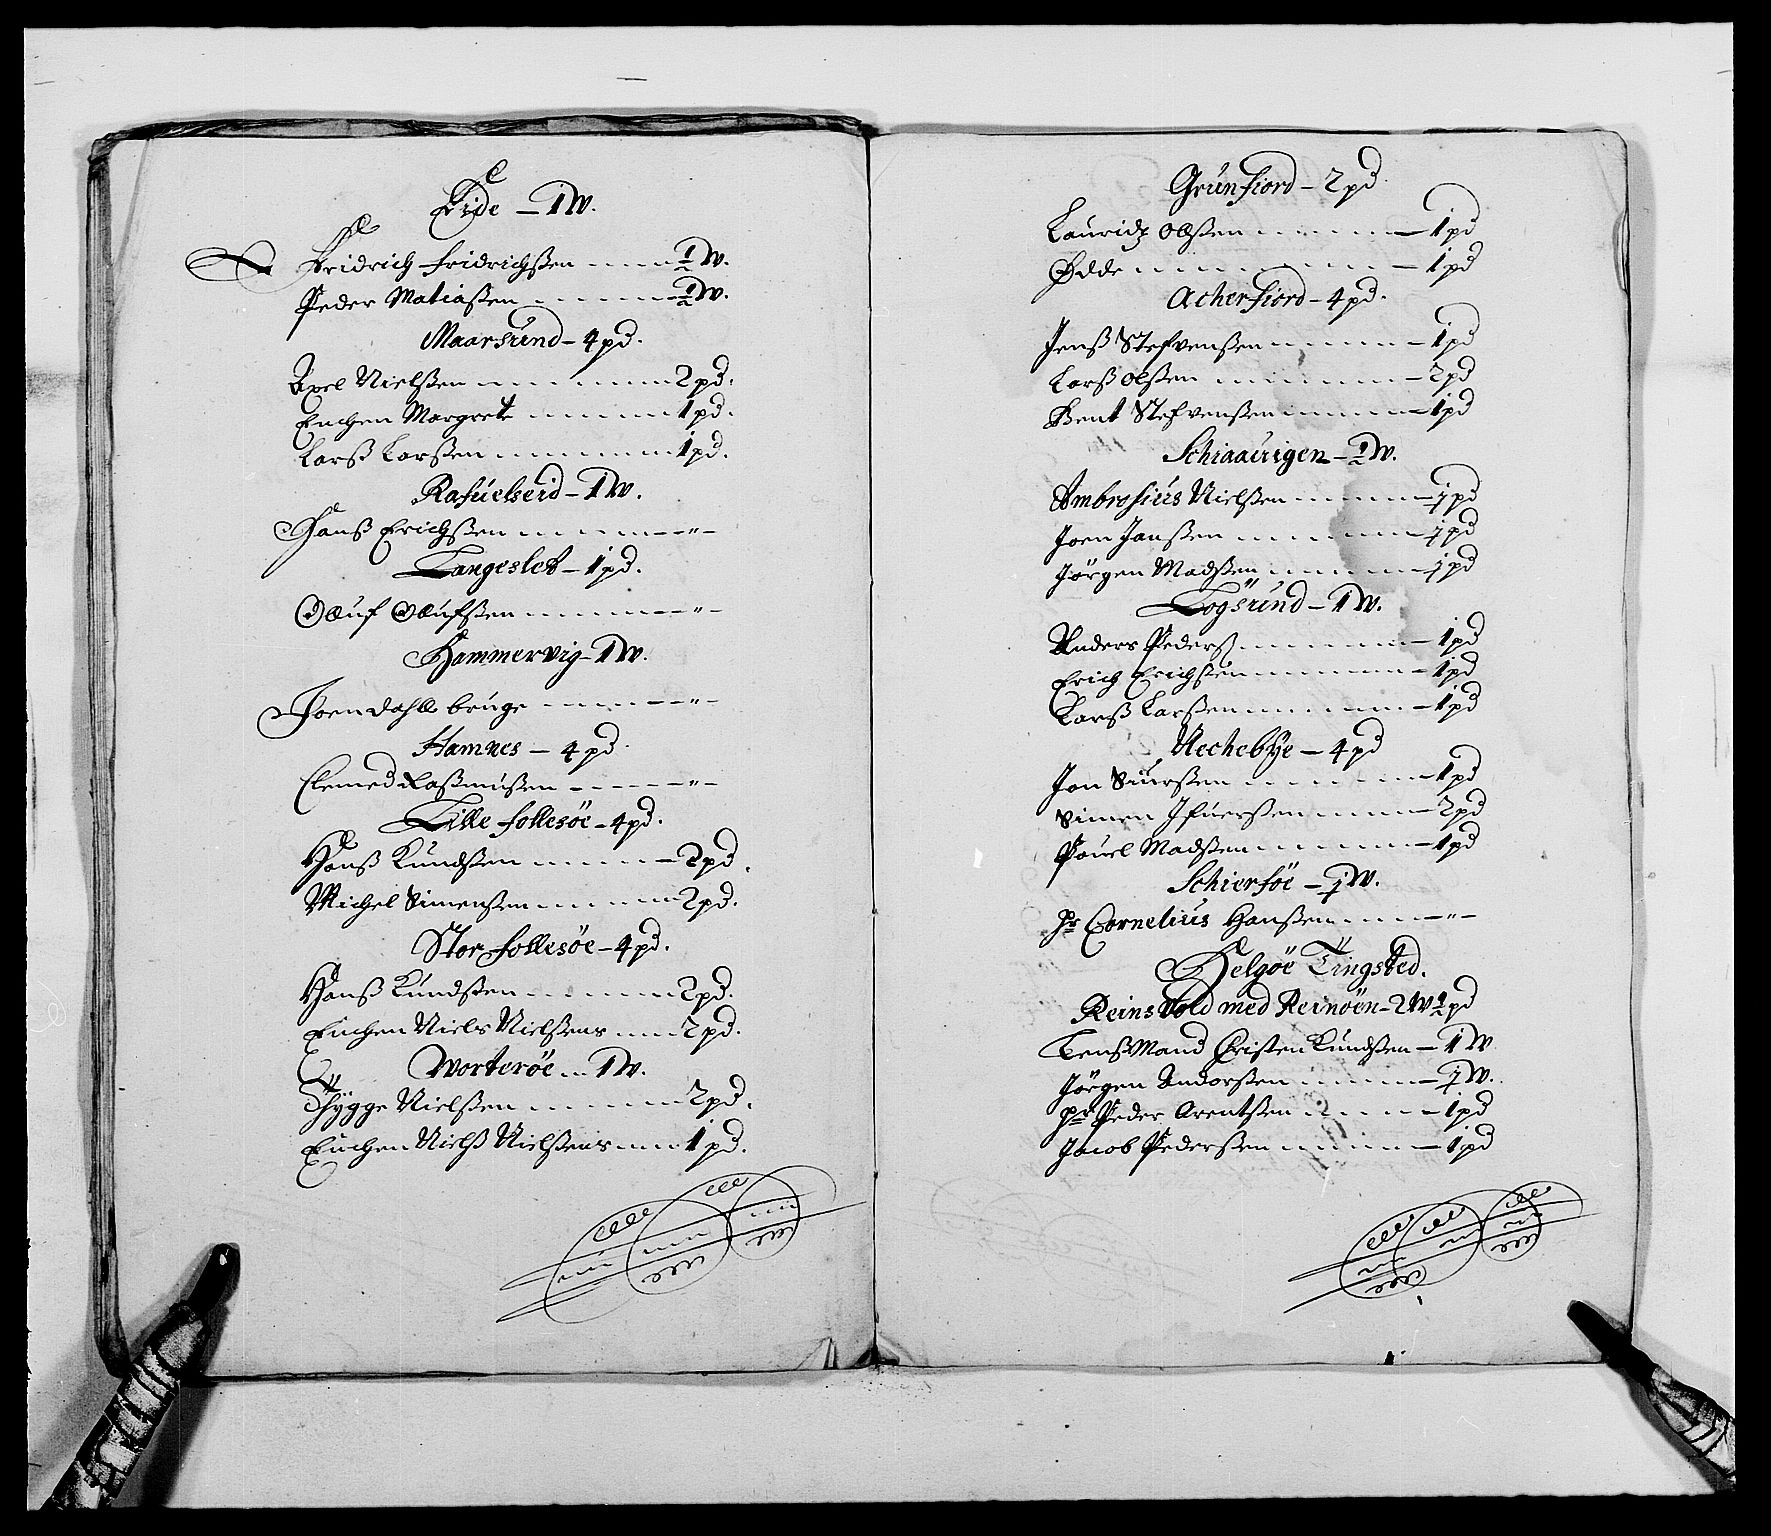 Eide – 1 W.
Fridrich Fridrichßen – ½ W.
Peder Matiaßen – ½ W.
Maarsund – 4 pd.
Axel Nielßen – 2 pd.
Enchen Margrete – 1 pd.
Larß Larßen – 1 pd.
Rafuelseid – 1 W.
Hanß Erichßen – "
Langeslet – 1 pd.
Oluf Olufsen – "
Hammervig – 1 W.
Joen Dahls bruge – "
Hamnes – 4 pd.
Clemed Rasmußen – "
Lille Follesöe – 4 pd.
Hanß Knudsen – 2 pd.
Michel Simenßen – 2 pd.
Stor Follesöe – 4 pd.
Hanß Knudsen – 2 pd.
Enchen Niels Nielßens – 2 pd.
Worteröe – 1 W.
Thÿgge Nielßen – 2 pd.
Enchen Nielß Nielßens – 1 pd.
Grunfiord – 2 pd
Lauridz Olßen – 1 pd
Ödde – 1 pd
Acherfiord – 4 pd.
Jenß Stefvenßen – 1 pd
Larß Olßen – 2 pd
Bent Stefvenßen – 1 pd
Schiaauigen – ½ W.
Ambrosius Nielßen – j pd
Joen Janßen – j pd
Jörgen Madßen – j pd
Logsund – 1 W.
Anders Pederß – 1 pd
Erich Erichsen – 1 pd
Larß Larßen – 1 pd
Hechebÿe – 4 pd
Jon Siurßen – 1 pd
Simen Ifuerßen – 2 pd
Pouel Madßen – 1 pd
Schiersöe – j W.
Hr Cornelius Hanßen – "
Helgöe Tingsted.
Reins Vold med Reinöen – 2 W ½ pd
Lenßmand Christen Knudßen – 1 W
Jörgen Andorßen – j W.
Hr Peder Arentßen – 1 pd
Jacob Pederßen – 1 pd